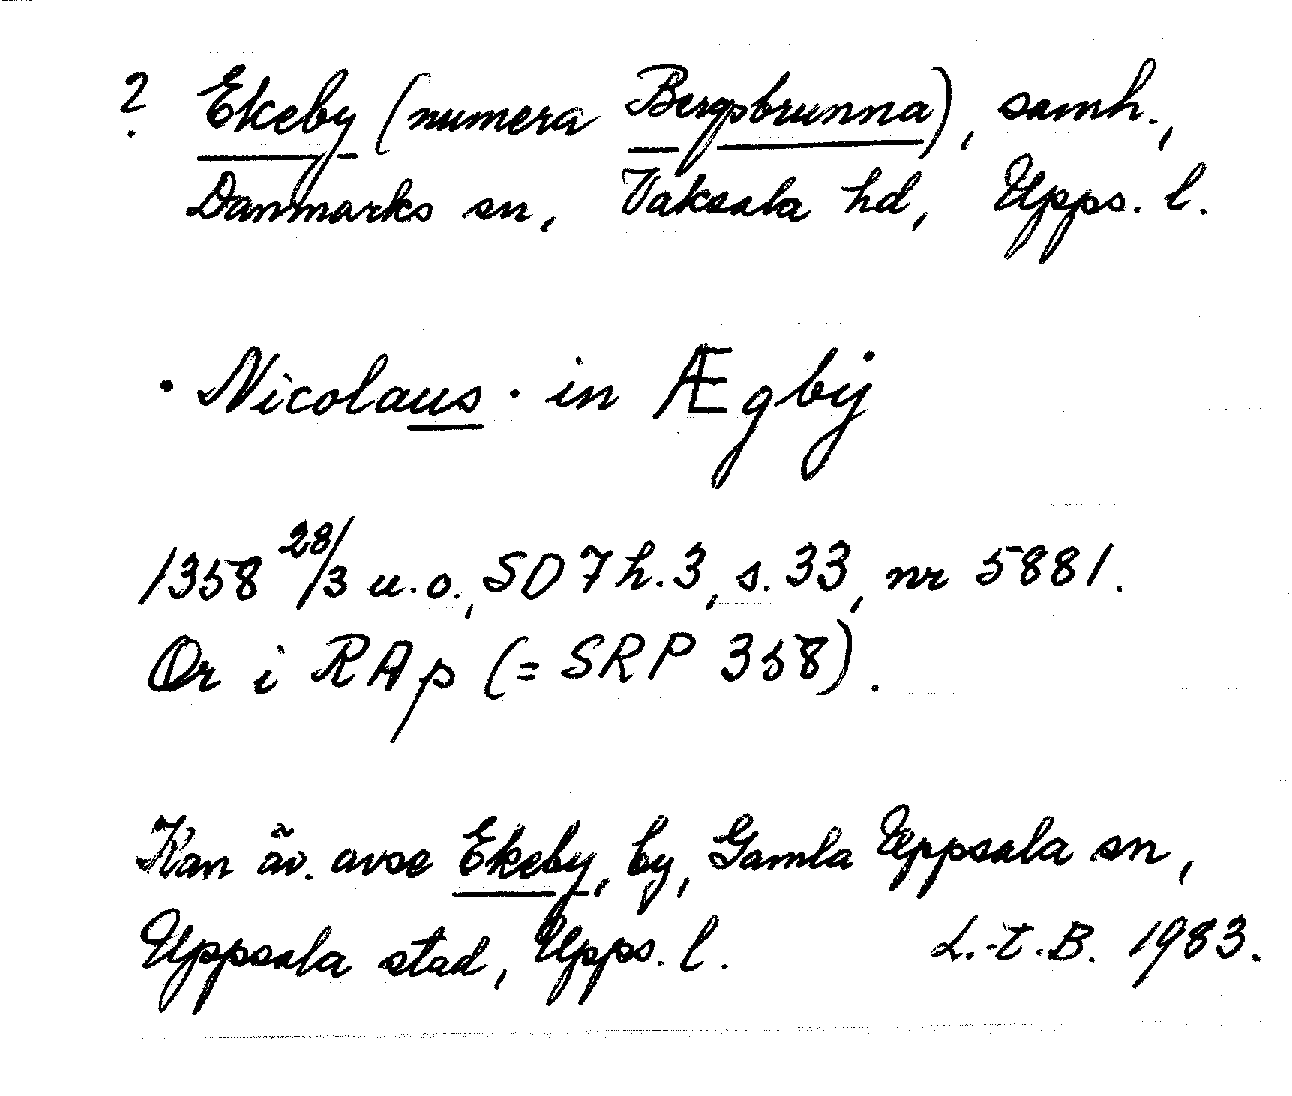 ? Ekeby (numera Bergsbrunna), samh.,
Danmarks sn, Vaksala hd, Upps. l.
· Nicolaus · in Ægbÿ
1358 28/3 u.o., SD 7 h. 3, s. 33, nr 5881.
Or i RAp (= SRP 358).
Kan äv. avse Ekeby, by, Gamla Uppsala sn,
Uppsala stad, Upps. l. L.-t. B. 1983.